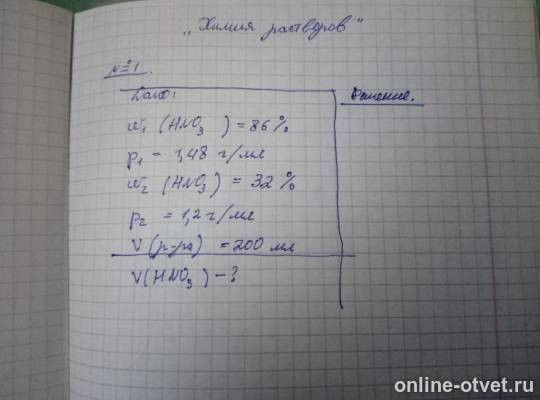 „Химия растворов"
№1.
Дано:
Решение.
w₁ (HNO₃) = 86%
ρ₁ = 1,48 г/мл
w₂ (HNO₃) = 32%
ρ₂ = 1,2 г/мл
V (р-ра) = 200 мл
V(HNO₃) - ?
online-otvet.ru